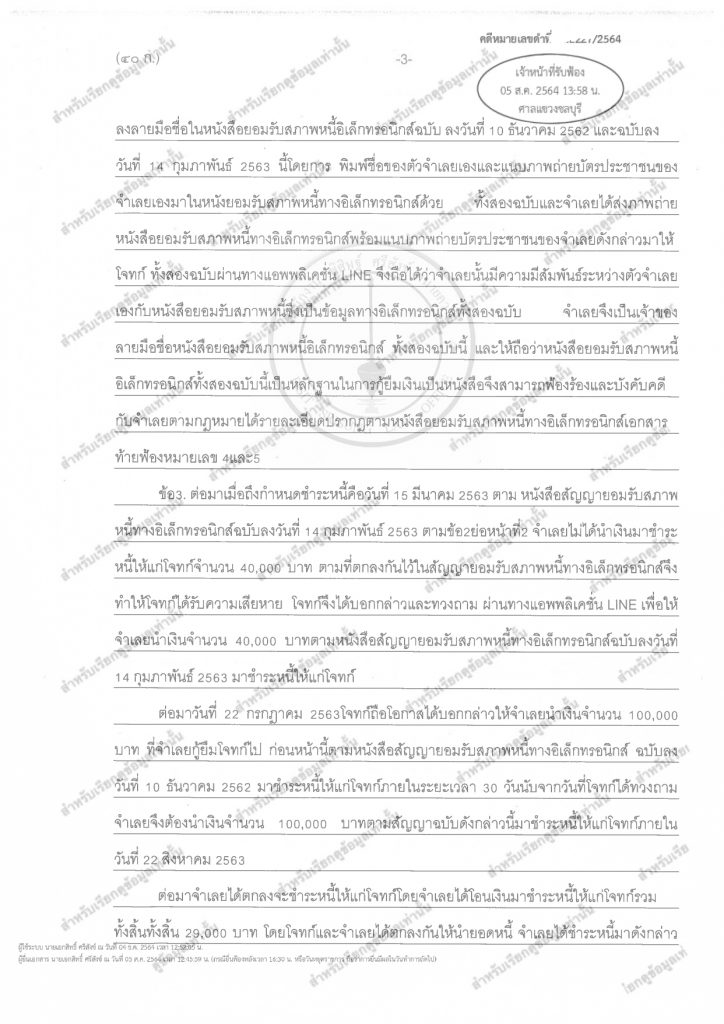 คดีหมายเลขดำที่ /2564
(๔๐ ก.)
-3-
เจ้าหน้าที่รับฟ้อง
05 ส.ค. 2564 13:58 น.
ศาลแขวงชลบุรี
ลงลายมือชื่อในหนังสือยอมรับสภาพหนี้อิเล็กทรอนิกส์ฉบับ ลงวันที่ 10 ธันวาคม 2562 และฉบับลง
วันที่ 14 กุมภาพันธ์ 2563 นี้โดยการ พิมพ์ชื่อของตัวจำเลยเองและแนบภาพถ่ายบัตรประชาชนของ
จำเลยเองมาในหนังยอมรับสภาพหนี้ทางอิเล็กทรอนิกส์ด้วย ทั้งสองฉบับและจำเลยได้ส่งภาพถ่าย
หนังสือยอมรับสภาพหนี้ทางอิเล็กทรอนิกส์พร้อมแนบภาพถ่ายบัตรประชาชนของจำเลยดังกล่าวมาให้
โจทก์ ทั้งสองฉบับผ่านทางแอพพลิเคชั่น LINE จึงถือได้ว่าจำเลยนั้นมีความมีสัมพันธ์ระหว่างตัวจำเลย
เองกับหนังสือยอมรับสภาพหนี้ซึ่งเป็นข้อมูลทางอิเล็กทรอนิกส์ทั้งสองฉบับ จำเลยจึงเป็นเจ้าของ
ลายมือชื่อหนังสือยอมรับสภาพหนี้อิเล็กทรอนิกส์ ทั้งสองฉบับนี้ และให้ถือว่าหนังสือยอมรับสภาพหนี้
อิเล็กทรอนิกส์ทั้งสองฉบับนี้เป็นหลักฐานในการกู้ยืมเงินเป็นหนังสือจึงสามารถฟ้องร้องและบังคับคดี
กับจำเลยตามกฎหมายได้รายละเอียดปรากฏตามหนังสือยอมรับสภาพหนี้ทางอิเล็กทรอนิกส์เอกสาร
ท้ายฟ้องหมายเลข 4และ5
ข้อ3. ต่อมาเมื่อถึงกำหนดชำระหนี้คือวันที่ 15 มีนาคม 2563 ตาม หนังสือสัญญายอมรับสภาพ
หนี้ทางอิเล็กทรอนิกส์ฉบับลงวันที่ 14 กุมภาพันธ์ 2563 ตามข้อ2ย่อหน้าที่2 จำเลยไม่ได้นำเงินมาชำระ
หนี้ให้แก่โจทก์จำนวน 40,000 บาท ตามที่ตกลงกันไว้ในสัญญายอมรับสภาพหนี้ทางอิเล็กทรอนิกส์จึง
ทำให้โจทก์ได้รับความเสียหาย โจทก์จึงได้บอกกล่าวและทวงถาม ผ่านทางแอพพลิเคชั่น LINE เพื่อให้
จำเลยนำเงินจำนวน 40,000 บาทตามหนังสือสัญญายอมรับสภาพหนี้ทางอิเล็กทรอนิกส์ฉบับลงวันที่
14 กุมภาพันธ์ 2563 มาชำระหนี้ให้แก่โจทก์
ต่อมาวันที่ 22 กรกฎาคม 2563โจทก์ถือโอกาสได้บอกกล่าวให้จำเลยนำเงินจำนวน 100,000
บาท ที่จำเลยกู้ยืมโจทก์ไป ก่อนหน้านี้ตามหนังสือสัญญายอมรับสภาพหนี้ทางอิเล็กทรอนิกส์ ฉบับลง
วันที่ 10 ธันวาคม 2562 มาชำระหนี้ให้แก่โจทก์ภายในระยะเวลา 30 วันนับจากวันที่โจทก์ได้ทวงถาม
จำเลยจึงต้องนำเงินจำนวน 100,000 บาทตามสัญญาฉบับดังกล่าวนี้มาชำระหนี้ให้แก่โจทก์ภายใน
วันที่ 22 สิงหาคม 2563
ต่อมาจำเลยได้ตกลงจะชำระหนี้ให้แก่โจทก์โดยจำเลยได้โอนเงินมาชำระหนี้ให้แก่โจทก์รวม
ทั้งสิ้นทั้งสิ้น 29,000 บาท โดยโจทก์และจำเลยได้ตกลงกันให้นำยอดหนี้ จำเลยได้ชำระหนี้มาดังกล่าว
ผู้ใช้ระบบ นายเอกสิทธิ์ ศรีสังข์ ณ วันที่ 04 ธ.ค. 2564 เวลา 12:52:05 น.
ผู้ยื่นเอกสาร นายเอกสิทธิ์ ศรีสังข์ ณ วันที่ 05 ส.ค. 2564 เวลา 12:45:59 น. (กรณียื่นฟ้องหลังเวลา 16:30 น. หรือวันหยุดราชการ ถือว่าการยื่นมีผลในวันทำการถัดไป)
สำหรับเรียกดูข้อมูลเท่านั้น